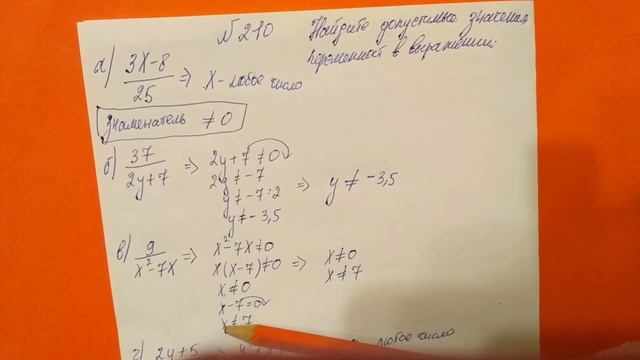 № 210
Найдите допустимые значения
переменной в выражении:
а) (3x-8)/25 => x - любое число
знаменатель ≠0
б) 37/(2y+7) => 2y+7≠0
2y≠-7
y≠-7:2 => y≠-3,5
y≠-3,5
в) 9/(x²-7x) => x²-7x≠0
x(x-7)≠0 => x≠0
x≠7
x≠0
x-7=0
x≠7
г) 2y+5
любое число